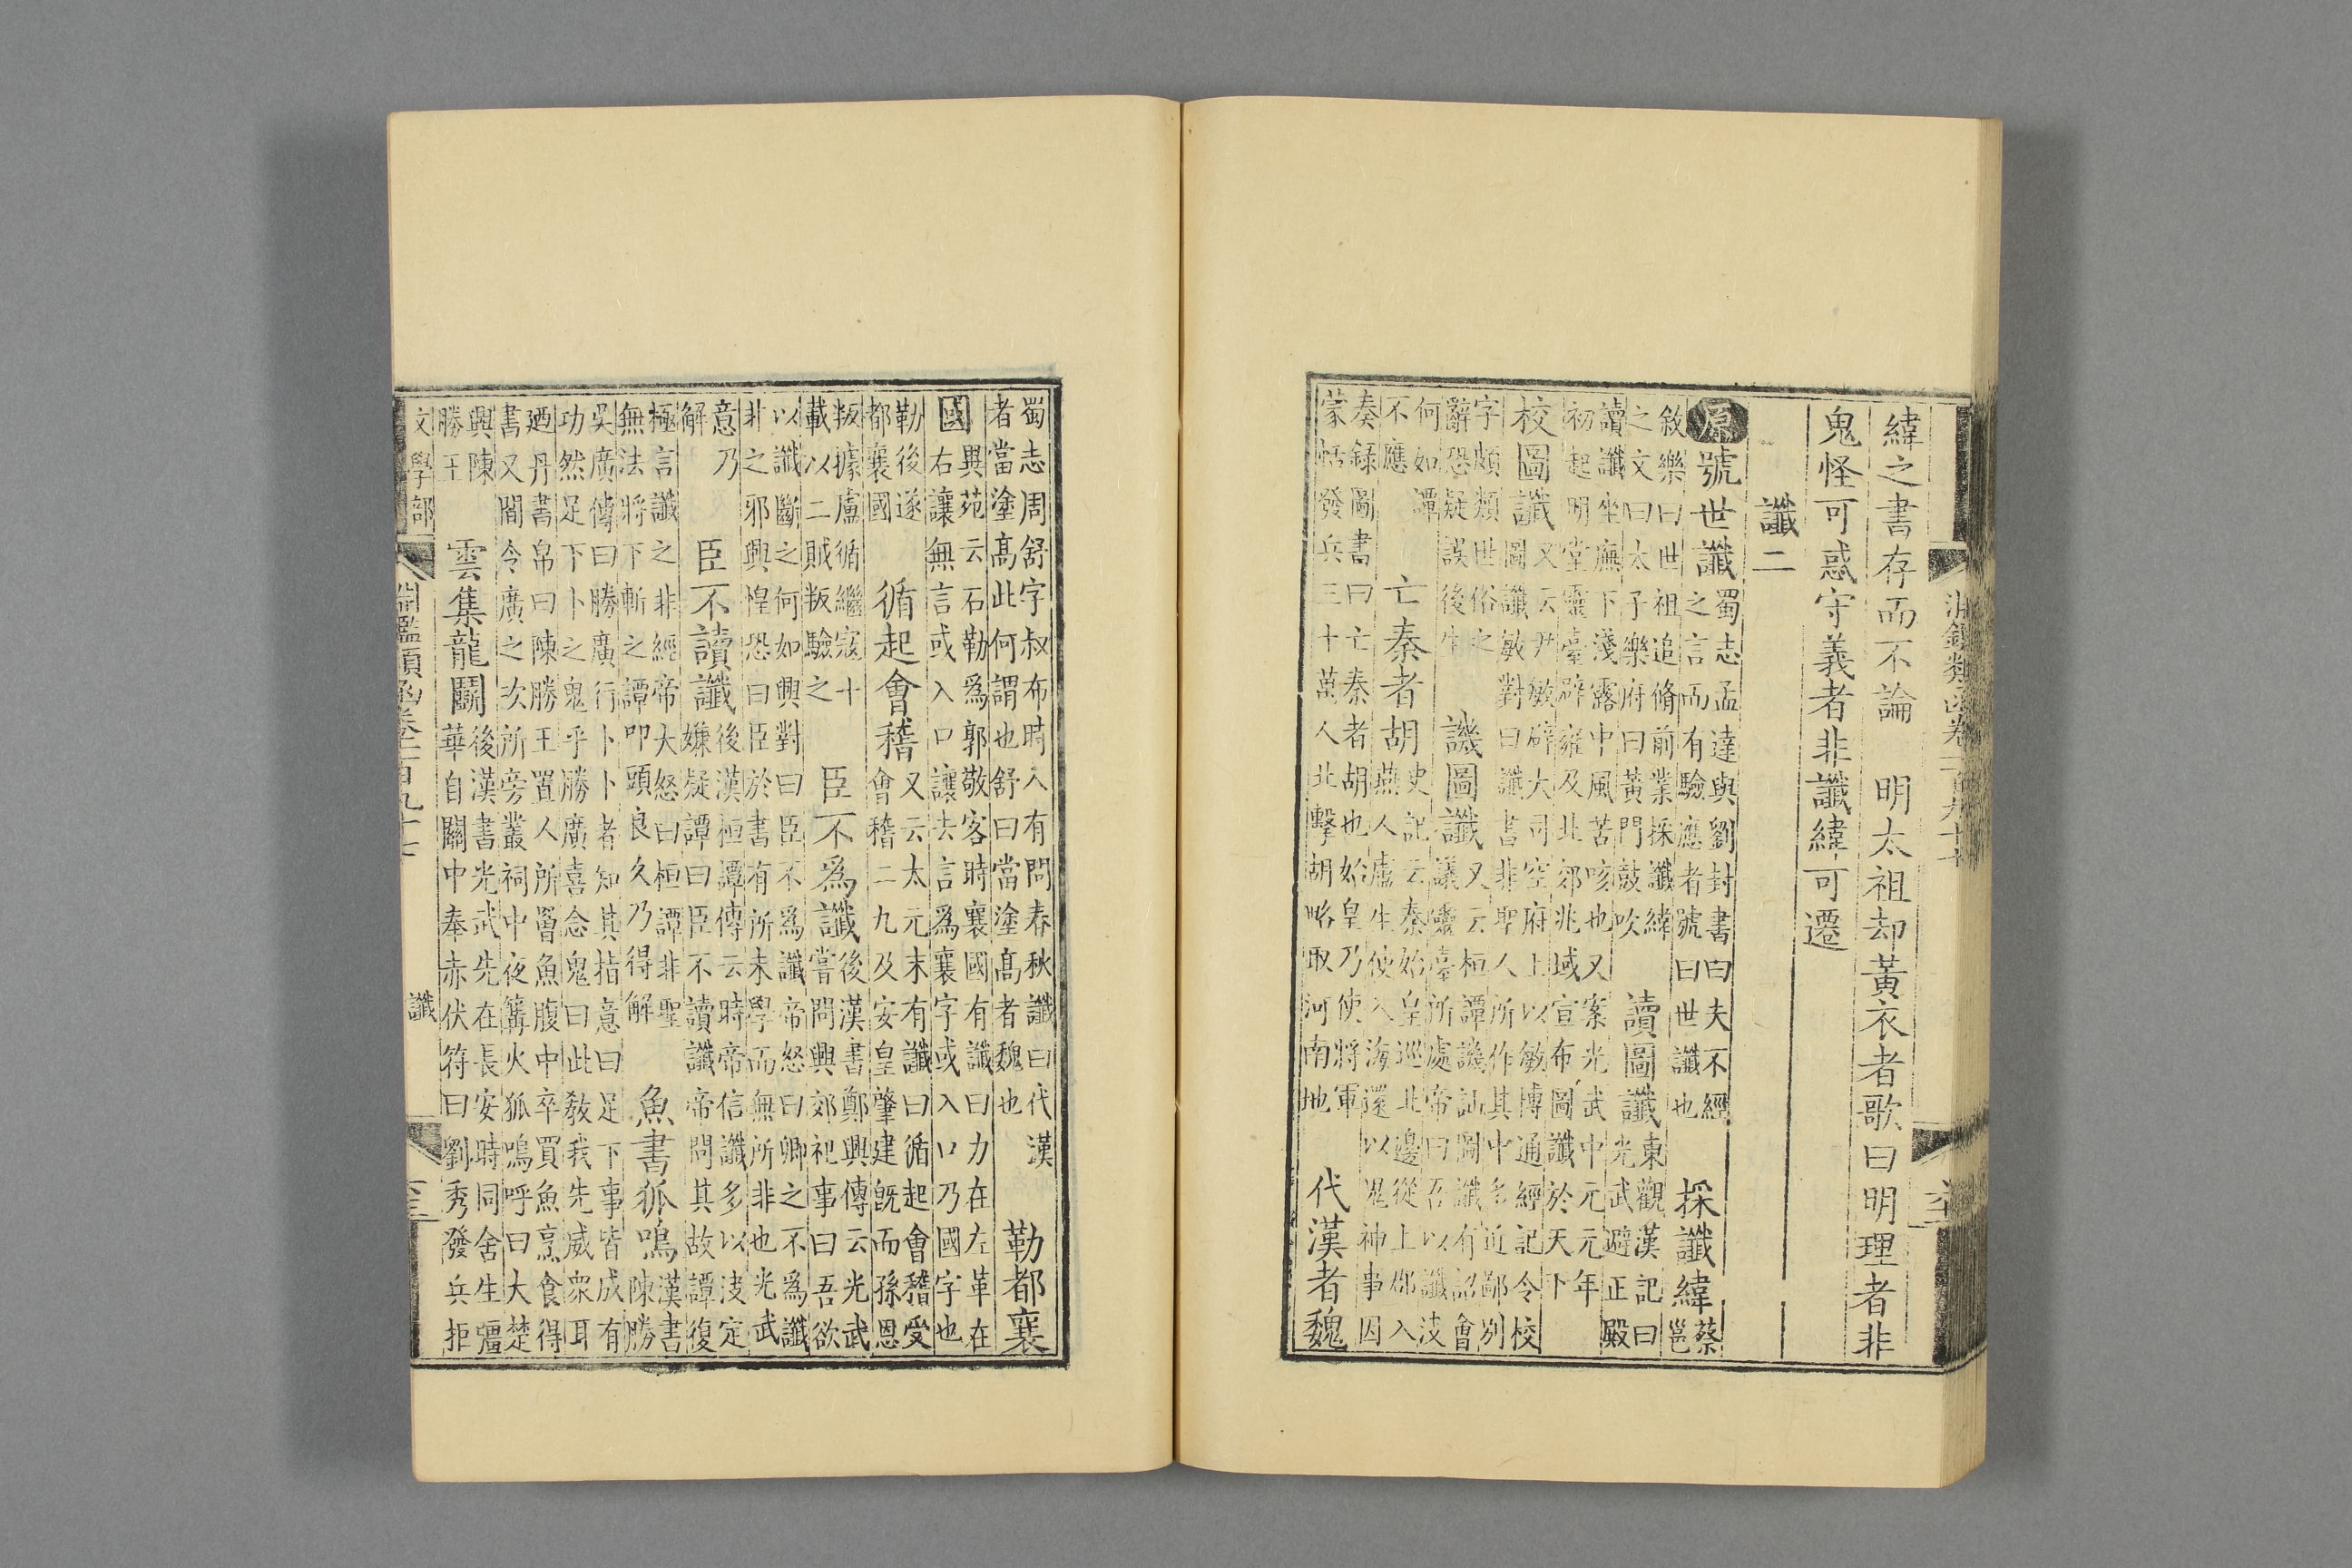 緯之書存而不論　明太祖却黃衣者歌曰明理者非
鬼怪可惑守義者非讖緯可遷
讖二
原號世讖
蜀志孟達與劉封書曰夫不經
之言而有驗應者號曰世讖也
採讖緯
蔡
邕
敘樂曰世祖追脩前業採讖緯
之文曰太子樂府曰黃門鼓吹
讀圖讖
東觀漢記曰
光武避正殿
讀讖坐廡下淺露中風苦咳也又案光武中元元年
初起明堂靈臺辟雍及北郊兆域宣布圖讖於天下
校圖讖
又云尹敏辟大司空府上以敏博通經記令校
圖讖敏對曰讖書非聖人所作其中多近鄙別
字頗類世俗之
辭恐疑誤後生
譏圖讖
又云桓譚譏訕圖讖有詔會
議靈臺所處帝曰吾以讖決
何如譚
不應
亡秦者胡
史記云秦始皇巡北邊從上郡入
燕人盧生使入海還以鬼神事因
奏錄圖書曰亡秦者胡也始皇乃使將軍
蒙恬發兵三十萬人北擊胡略取河南地
代漢者魏
蜀志周舒字叔布時人有問春秋讖曰代漢
者當塗高此何謂也舒曰當塗高者魏也
勒都襄
國
異苑云石勒爲郭敬客時襄國有讖曰力在左革在
右讓無言或入口讓去言爲襄字或入口乃國字也
勒後遂
都襄國
循起會稽
又云太元末有讖曰循起會稽受
會稽二九及安皇肇建旣而孫恩
叛據盧循繼寇十
載以二賊叛驗之
臣不爲讖
後漢書鄭興傳云光武
嘗問興郊祀事曰吾欲
以讖斷之何如興對曰臣不爲讖帝怒曰卿之不爲讖
非之邪興惶恐曰臣於書有所未學而無所非也光武
意乃
解
臣不讀讖
後漢桓譚傳云時帝信讖多以決定
嫌疑譚曰臣不讀讖帝問其故譚復
極言讖之非經帝大怒曰桓譚非聖
無法將下斬之譚叩頭良久乃得解
魚書狐鳴
漢書
陳勝
吳廣傳曰勝廣行卜卜者知其指意曰足下事皆成有
功然足下卜之鬼乎勝廣喜念鬼曰此教我先威衆耳
廼丹書帛曰陳勝王置人所罾魚腹中卒買魚烹食得
書又閒令廣之次所旁叢祠中夜篝火狐鳴呼曰大楚
興陳
勝王
雲集龍鬭
後漢書光武先在長安時同舍生彊
華自關中奉赤伏符曰劉秀發兵拒
文學部　淵鑑類函卷一百九十七　讖